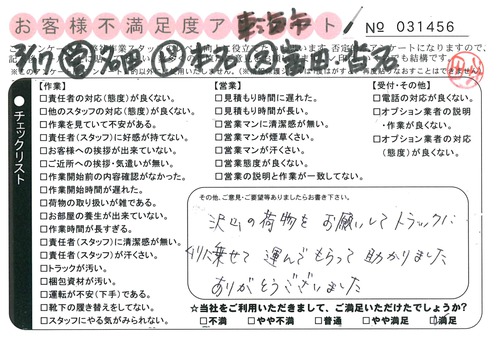 お客様不満足度ア 東海市 ト
No 031456
3/17 営 石田
【作業】
□責任者の対応(態度)が良くない。
□他のスタッフの対応(態度)が良くない。
□作業を見ていて不安がある。
□責任者(スタッフ)に好感が持てない。
□お客様への挨拶が出来ていない。
□ご近所への挨拶・気遣いが無い。
□作業開始前の内容確認がなかった。
□作業開始時間が遅れた。
□荷物の取り扱いが雑である。
□お部屋の養生が出来ていない。
□作業時間が長すぎる。
□責任者(スタッフ)に清潔感が無い。
□責任者(スタッフ)が汗くさい。
□トラックが汚い。
□梱包資材が汚い。
□運転が不安(下手)である。
□靴下の履き替えをしてない。
□スタッフにやる気がみられない。
【営業】
□見積もり時間に遅れた。
□見積もり時間が長い。
□営業マンに清潔感が無い。
□営業マンが煙草くさい。
□営業マンが汗くさい。
□営業態度が良くない。
□営業の説明と作業が一致してない。
【受付・その他】
□電話の対応が良くない。
□オプション業者の説明
・作業が良くない。
□オプション業者の対応
(態度)が良くない。
チェックリスト
その他、ご意見・ご要望等ありましたらお書き下さい。
沢山の荷物をお願いしてトラックに
乗せて 運んでもらって 助かりました
ありがとうございました
☆当社をご利用いただきまして、ご満足いただけたでしょうか?
□不満 □やや不満 □普通 □やや満足 □満足